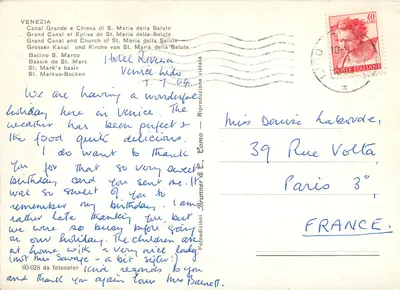 VENEZIA
Canal Grande e Chiesa di S. Maria della Salute
Grand Canal et Eglise de St. Maria della Salute
Grand Canal and Church of St. Maria della Salute
Grosser Kanal und Kirche von St. Maria della Salute
Bacino S. Marco
Bassin de St. Marc
St. Mark's basin
St. Markus-Becken
Hotel Riviera
Venice Lido
7.7.64
We are having a wonderful
holiday here in Venice. The
weather has been perfect &
the food quite delicious.
I do want to thank
you for that so very sweet
birthday card you sent me. It
was so sweet of you to
remember my birthday. I am
rather late thanking you, but
we were so busy before going
on our holiday. The children are
at home with a very nice lady
(not Miss Savage - a bit stiffer!)
60-028 da fotocolor
Kind regards to you
and thank you again from Mrs Barnett.
Riproduzione vietata
Fotoedizioni Brunner & C. Como
40
POSTE ITALIANE
Miss Denise Laborde,
39 Rue Volta,
Paris 3°,
FRANCE.